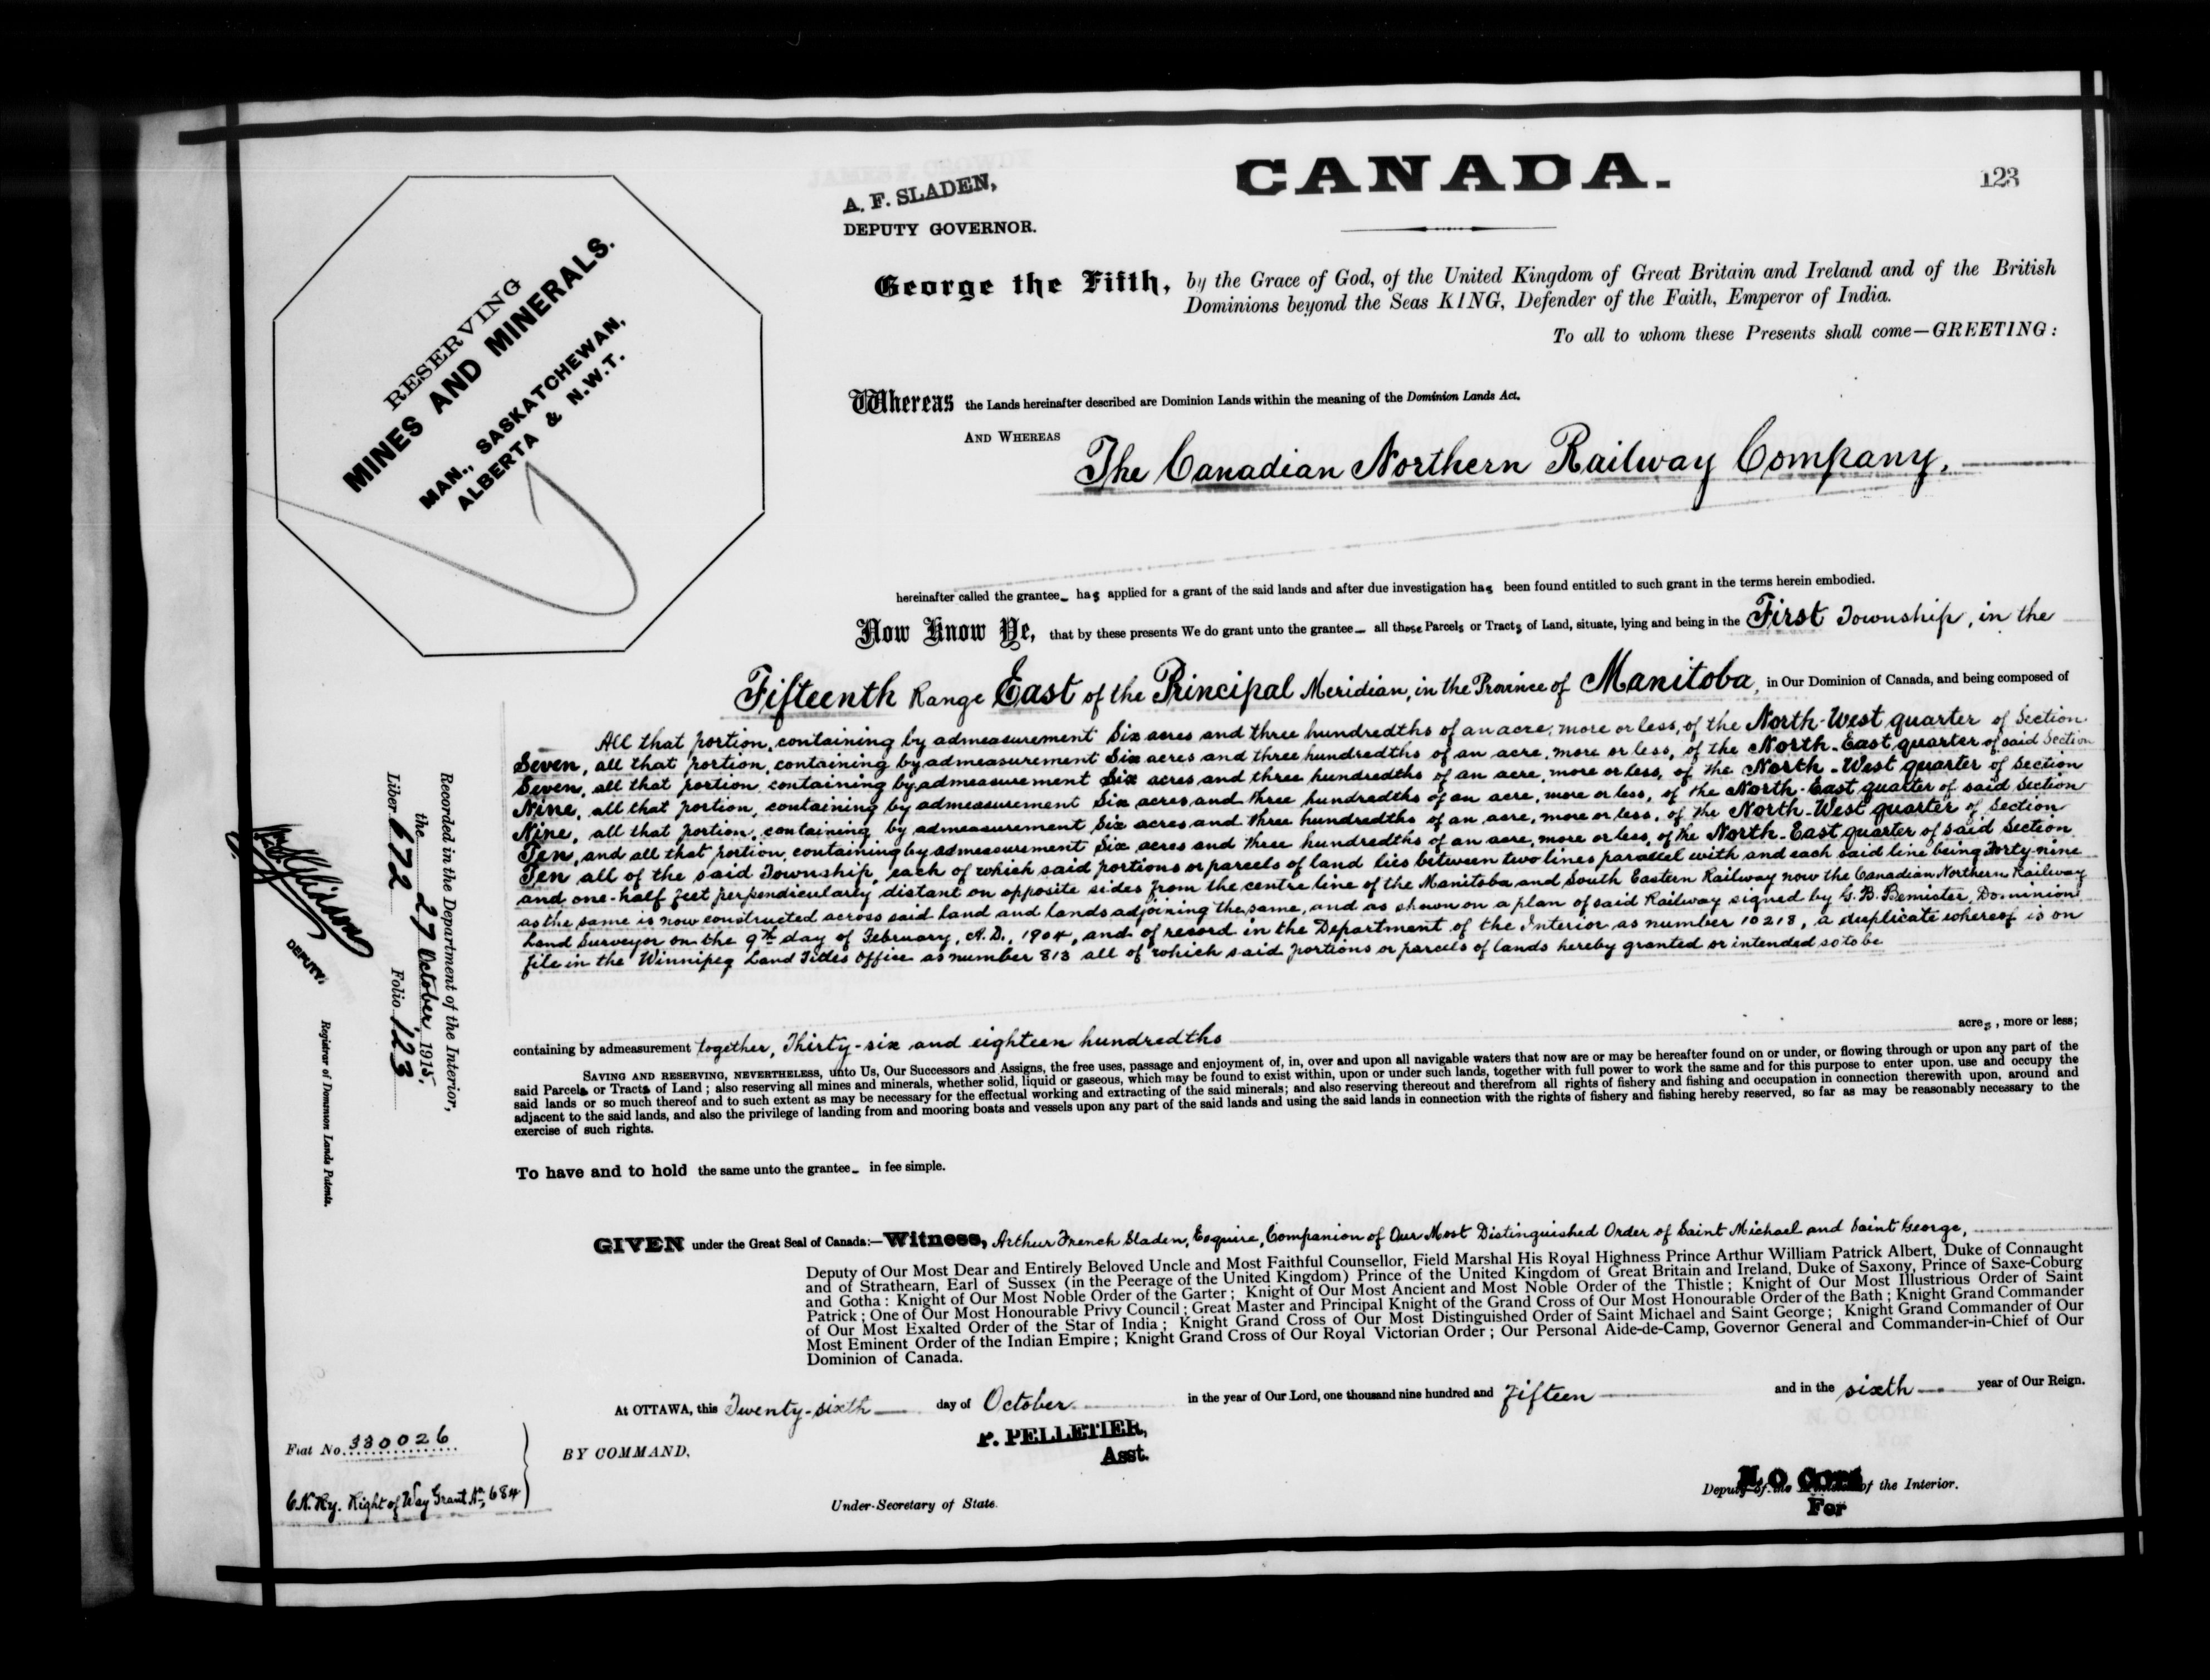 CANADA.
123
A. F. SLADEN,
DEPUTY GOVERNOR.
RESERVING
MINES AND MINERALS.
MAN., SASKATCHEWAN,
ALBERTA & N.W.T.
George the Fifth, by the Grace of God, of the United Kingdom of Great Britain and Ireland and of the British
Dominions beyond the Seas KING, Defender of the Faith, Emperor of India.
To all to whom these Presents shall come—GREETING:
Whereas the Lands hereinafter described are Dominion Lands within the meaning of the Dominion Lands Act.
AND WHEREAS
The Canadian Northern Railway Company,
hereinafter called the grantee has applied for a grant of the said lands and after due investigation has been found entitled to such grant in the terms herein embodied.
Now Know Ye, that by these presents We do grant unto the grantee all those Parcels or Tracts of Land, situate, lying and being in the First Township, in the
Fifteenth Range East of the Principal Meridian, in the Province of Manitoba, in Our Dominion of Canada, and being composed of
All that portion, containing by admeasurement Six acres and three hundredths of an acre, more or less, of the North-West quarter of Section
Seven, all that portion, containing by admeasurement Six acres and three hundredths of an acre, more or less, of the North-East quarter of said Section
Seven, all that portion, containing by admeasurement Six acres and three hundredths of an acre, more or less, of the North-West quarter of Section
Nine, all that portion, containing by admeasurement Six acres and three hundredths of an acre, more or less, of the North-East quarter of said Section
Nine, all that portion, containing by admeasurement Six acres and three hundredths of an acre, more or less, of the North-West quarter of Section
Ten, and all that portion, containing by admeasurement Six acres and three hundredths of an acre, more or less, of the North-East quarter of said Section
Ten all of the said Township, each of which said portions or parcels of land lies between two lines parallel with and each said line being Forty-nine
and one-half feet perpendicularly distant on opposite sides from the centre line of the Manitoba and South Eastern Railway now the Canadian Northern Railway
as the same is now constructed across said land and lands adjoining the same, and as shown on a plan of said Railway signed by G. B. Bemister, Dominion
Land Surveyor on the 9th day of February, A.D., 1904, and of record in the Department of the Interior as number 10218, a duplicate whereof is on
file in the Winnipeg Land Titles Office as number 813 all of which said portions or parcels of lands hereby granted or intended so to be
containing by admeasurement together, Thirty-six and eighteen hundredths acres, more or less;
SAVING AND RESERVING, NEVERTHELESS, unto Us, Our Successors and Assigns, the free uses, passage and enjoyment of, in, over and upon all navigable waters that now are or may be hereafter found on or under, or flowing through or upon any part of the
said Parcels or Tracts of Land; also reserving all mines and minerals, whether solid, liquid or gaseous, which may be found to exist within, upon or under such lands, together with full power to work the same and for this purpose to enter upon, use and occupy the
said lands or so much thereof and to such extent as may be necessary for the effectual working and extracting of the said minerals; and also reserving thereout and therefrom all rights of fishery and fishing and occupation in connection therewith upon, around and
adjacent to the said lands, and also the privilege of landing from and mooring boats and vessels upon any part of the said lands and using the said lands in connection with the rights of fishery and fishing hereby reserved, so far as may be reasonably necessary to the
exercise of such rights.
To have and to hold the same unto the grantee in fee simple.
GIVEN under the Great Seal of Canada:—Witness, Arthur French Sladen, Esquire, Companion of Our Most Distinguished Order of Saint Michael and Saint George,
Deputy of Our Most Dear and Entirely Beloved Uncle and Most Faithful Counsellor, Field Marshal His Royal Highness Prince Arthur William Patrick Albert, Duke of Connaught
and of Strathearn, Earl of Sussex (in the Peerage of the United Kingdom) Prince of the United Kingdom of Great Britain and Ireland, Duke of Saxony, Prince of Saxe-Coburg
and Gotha: Knight of Our Most Noble Order of the Garter; Knight of Our Most Ancient and Most Noble Order of the Thistle; Knight of Our Most Illustrious Order of Saint
Patrick; One of Our Most Honourable Privy Council; Great Master and Principal Knight of the Grand Cross of Our Most Honourable Order of the Bath; Knight Grand Commander
of Our Most Exalted Order of the Star of India; Knight Grand Cross of Our Most Distinguished Order of Saint Michael and Saint George; Knight Grand Commander of Our
Most Eminent Order of the Indian Empire; Knight Grand Cross of Our Royal Victorian Order; Our Personal Aide-de-Camp, Governor General and Commander-in-Chief of Our
Dominion of Canada.
At OTTAWA, this Twenty-sixth day of October in the year of Our Lord, one thousand nine hundred and fifteen and in the sixth year of Our Reign.
BY COMMAND,
P. PELLETIER,
Asst.
Under-Secretary of State.
N. O. COTE
Deputy of the of the Interior.
For
Fiat No. 330026
C.N.Ry. Right of Way Grant No. 684
Recorded in the Department of the Interior,
the 27 October 1915,
Liber 672 Folio 123
DEPUTY
Registrar of Dominion Lands Patents.